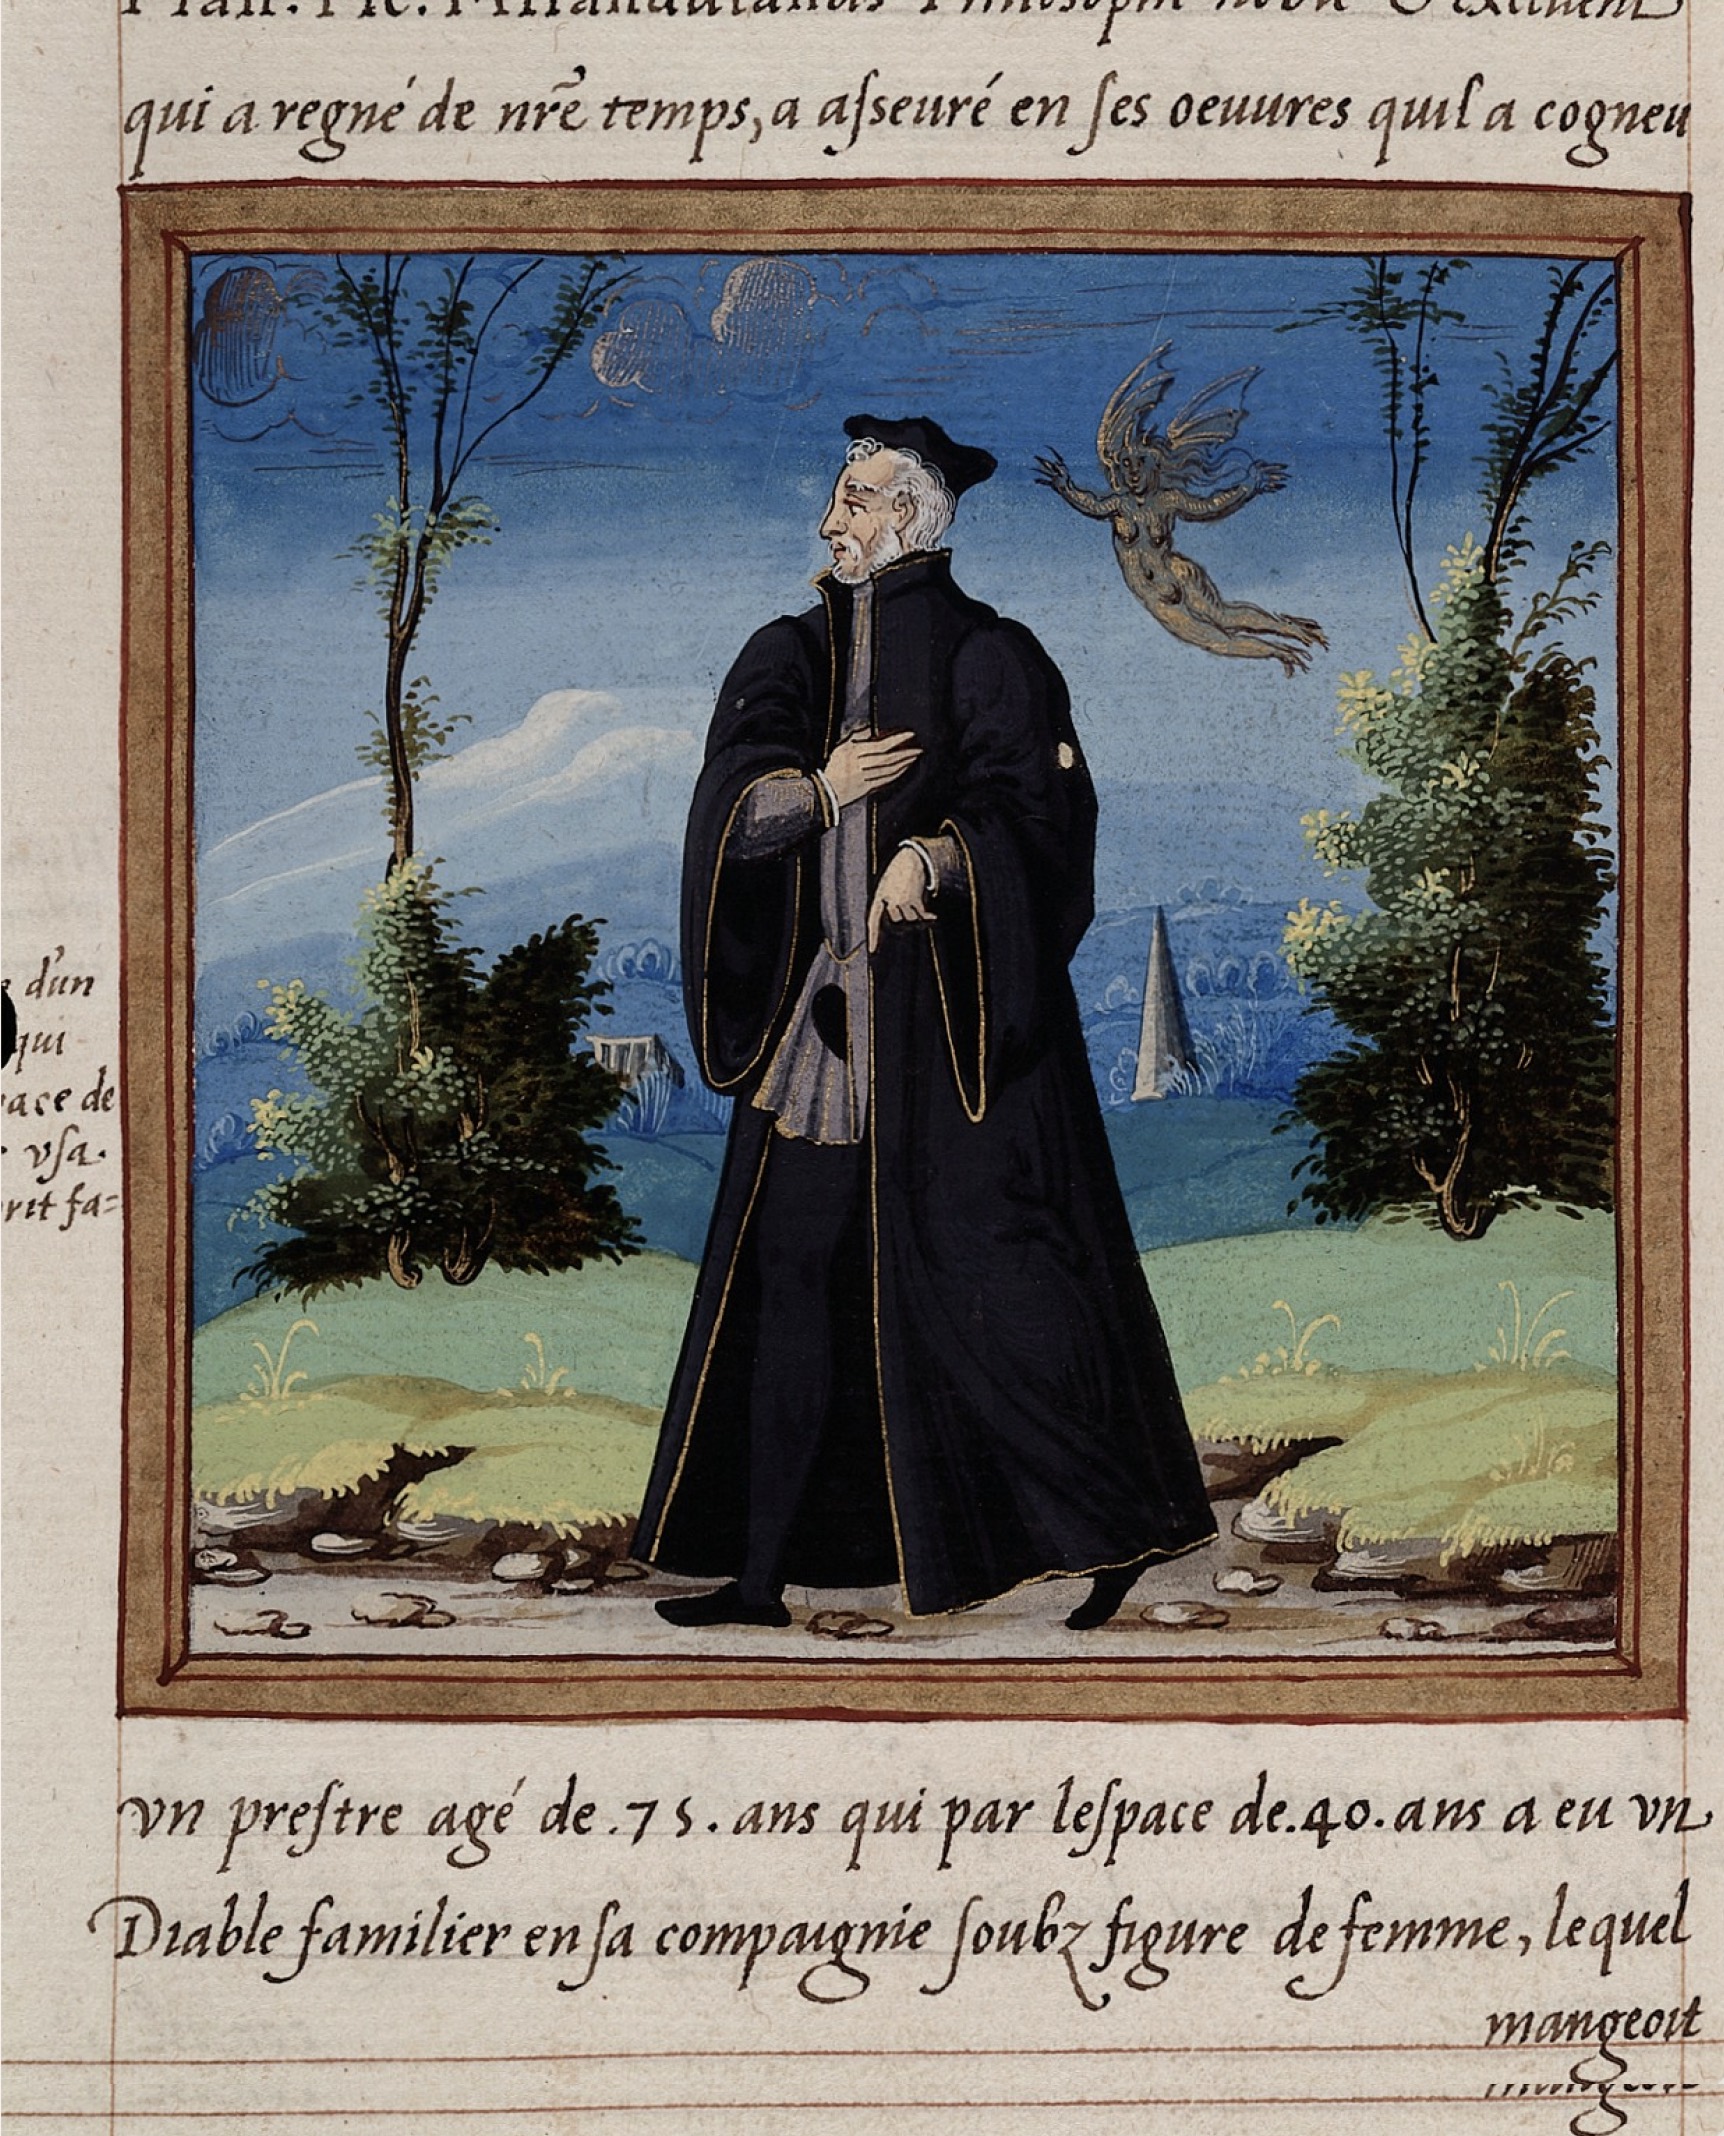 qui a regné de nrē temps, a aſseuré en ſes oeuures quil a cogneu
d'un
qui
ace de
vſa.
rit fa=
vn preſtre agé de .75. ans qui par leſpace de .40. ans a eu vn
Diable familier en ſa compaignie ſoubz figure de femme, lequel
mangeoit